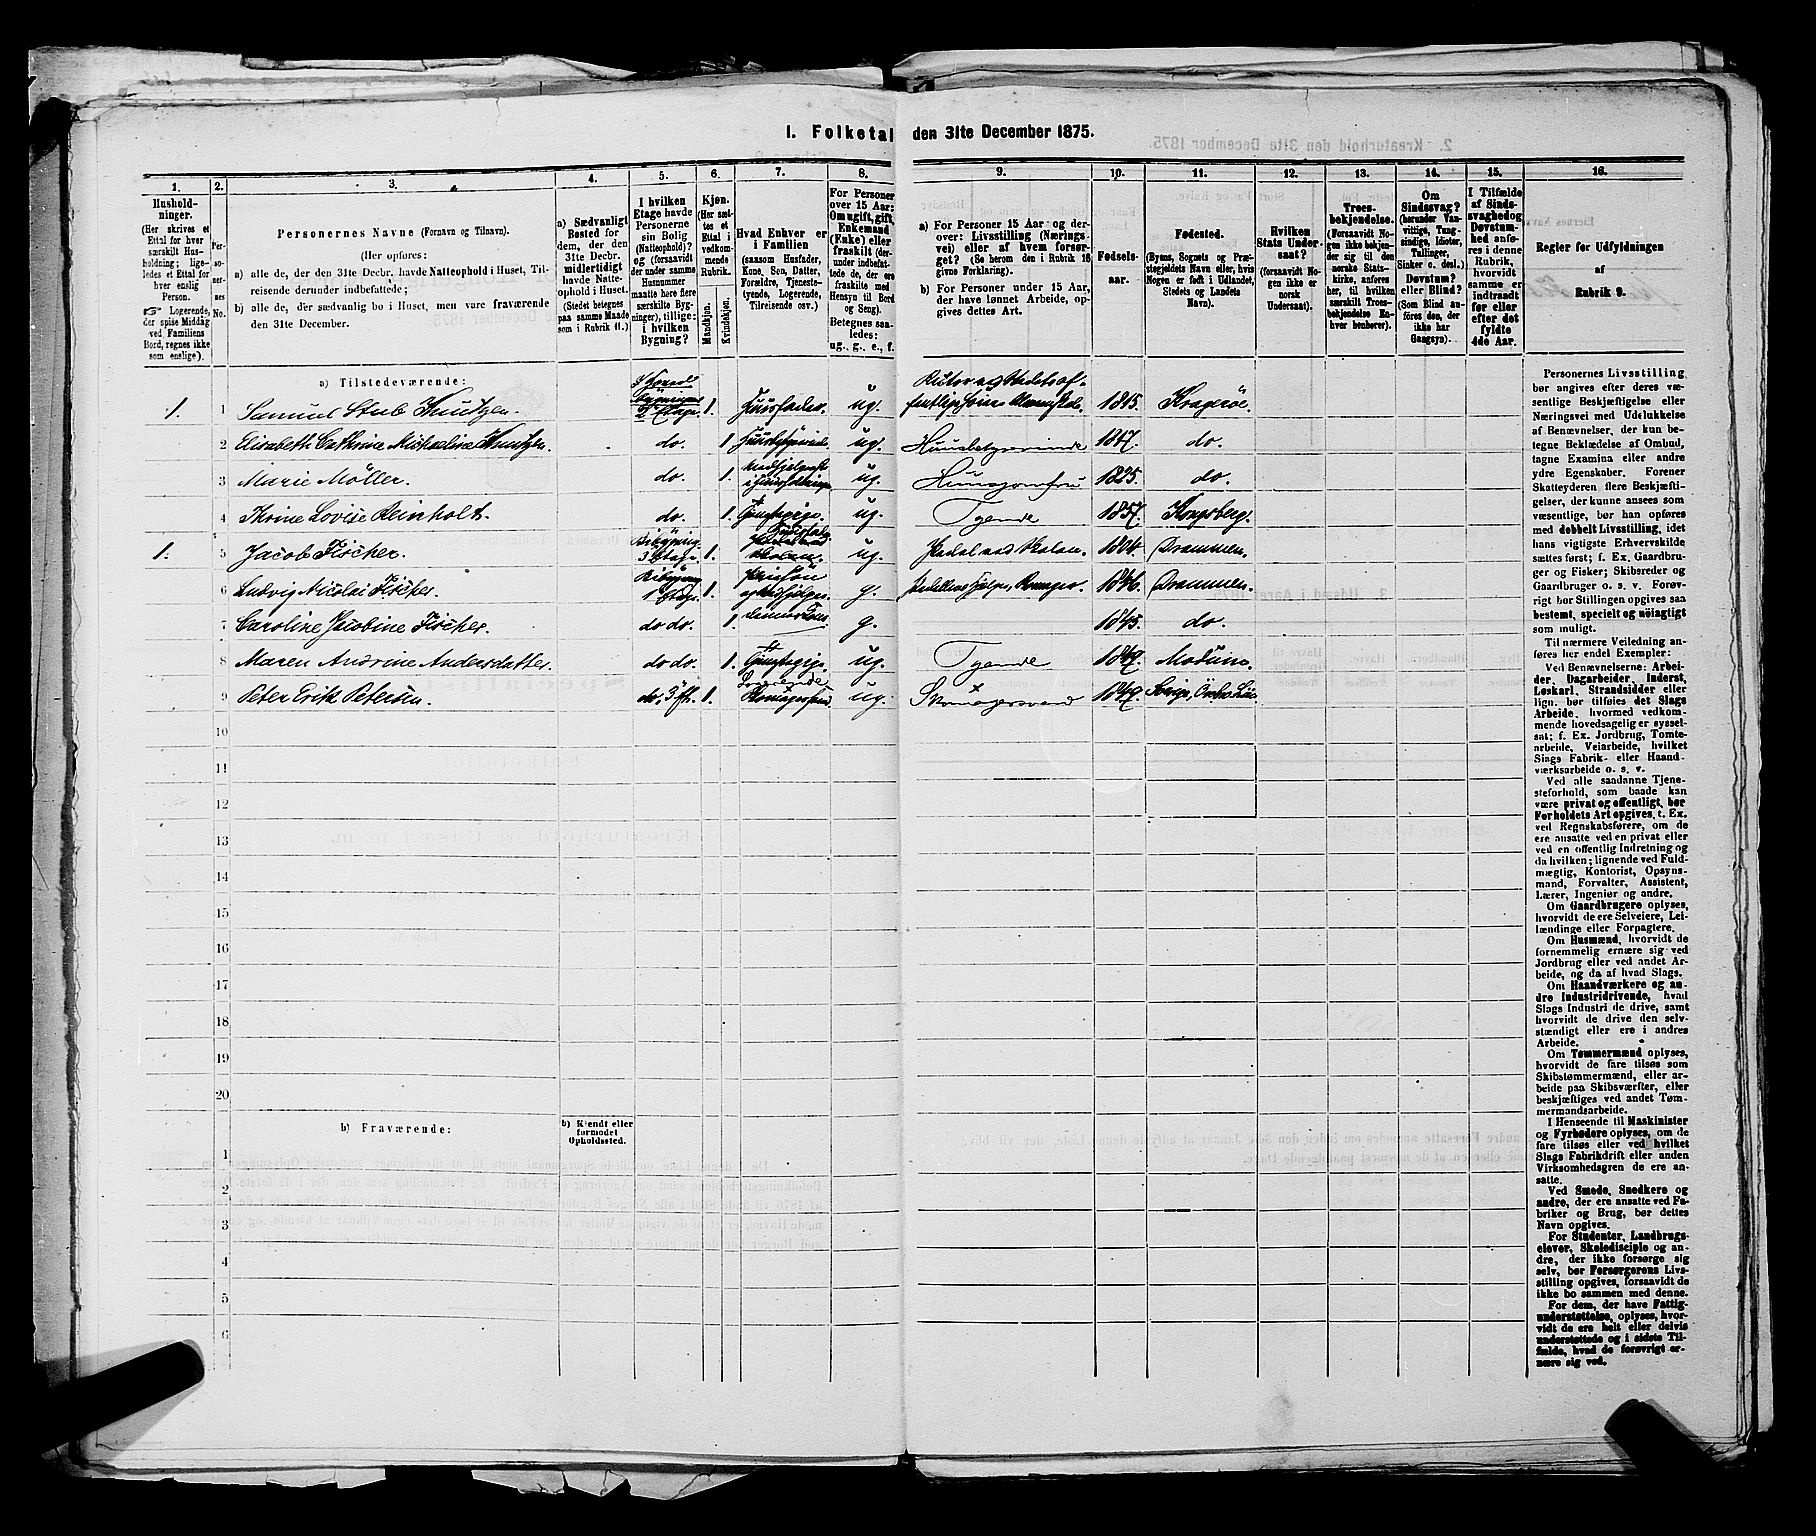 I. Folketal den 31te December 1875.
1. 2. 3. 4. 5. 6. 7. 8. 9. 10. 11. 12. 13. 14. 15. 16.
Hushold-
ninger.
(Her skrives et
Ettal for hver
særskilt Hus-
holdning; lige-
ledes et Ettal for
hver enslig
Person.
☞ Logerende,
der spise Middag
ved Familiens
Bord, regnes ikke
som enslige).
Per-
so-
ner-
nes
No.
Personernes Navne (Fornavn og Tilnavn).
(Her opføres:
a) alle de, der den 31te Decbr. havde Natteophold i Huset, Til-
reisende derunder indbefattede;
b) alle de, der sædvanlig bo i Huset, men vare fraværende
den 31te December.
a) Sædvanligt
Bosted for
dem, der den
31te Decbr.
midlertidigt
havde Natte-
ophold i Huset.
(Stedet betegnes
paa samme Maade
som i Rubrik 11.)
I hvilken
Etage havde
Personerne
sin Bolig
(Natteophold)?
og (forsaavidt
der under samme
Husnummer
maatte høre flere
særskilte Byg-
ninger), tillige:
i hvilken
Bygning?
Kjøn.
(Her sæt-
tes et
Ettal i
vedkom-
mende
Rubrik.
Mandkjøn.
Kvindekjøn.
Hvad Enhver er
i Familien
(saasom Husfader,
Kone, Søn, Datter,
Forældre, Tjeneste-
tyende, Logerende,
Tilreisende osv.)
For Personer
over 15 Aar:
Om ugift, gift,
Enkemand
(Enke) eller
fraskilt (der-
under indbefat-
tede de, der ere
fraskilte med
Hensyn til Bord
og Seng).
Betegnes saa-
ledes:
ug., g., e., f.
a) For Personer 15 Aar og der-
over: Livsstilling (Nærings-
vei) eller af hvem forsør-
get? (Se herom den i Rubrik 16
givne Forklaring).
b) For Personer under 15 Aar,
der have lønnet Arbeide, op-
gives dettes Art.
Fødsels-
aar.
Fødested.
(Byens, Sognets og Præ-
stegjeldets Navn eller, hvis
Nogen er født i Udlandet,
Stedets og Landets
Navn).
Hvilken
Stats Under-
saat?
(forsaavidt No-
gen ikke er
norsk
Undersaat).
Troes-
bekjendelse.
(Forsaavidt No-
gen ikke bekjen-
der sig til den
norske Stats-
kirke, anføres
her, til hvilken
særskilt Troes-
bekjendelse En-
hver henhører).
Om
Sindssvag?
(herunder Van-
vittige, Tung-
sindige, Idioter,
Tullinger,
Sinker o. desl.)
Døvstum?
eller Blind?
(Som Blind an-
føres den, der
ikke har
Gangsyn).
I Tilfælde
af Sinds-
svaghed og
Døvstum-
hed anfø-
res i denne
Rubrik,
hvorvidt
samme er
indtraadt
før eller
efter det
fyldte
4de Aar.
Regler for Udfyldningen
af
Rubrik 9.
a) Tilstedeværende:
1. 1 Samuel Stub Knutzen. 2 Etage. 1. Huusfader. ug. 1845. Kragerøe.
2 Elisabeth Cathrine Michaeline Knutzen. do. 1. ug. Huusbestyrerinde 1847. do.
3 Marie Möller. do. 1. ug. Huusjomfru 1825. do.
4 Thrine Lovise Reinholt. do. 1. ug. Tyende 1857. Kongsberg.
1. 5 Jacob Fischer. 3 Etage. 1. ug. 1804. Drammen.
6 Ludvig Nicolai Fischer. 1 Etage. 1. g. 1846. Drammen.
7 Caroline Jacobine Fischer. do do. 1. g. 1845. do.
8 Maren Andrine Andersdatter do do. 1. ug. Tyende 1849. Modum
9 Peter Erik Petersen. do. 1. Logerende ug. Skomagersvend 1849.
10
11
12
13
14
15
16
17
18
19
20
b) Fraværende:
b) Kjendt eller
formodet
Opholdssted.
1
2
3
4
5
6
Personernes Livsstilling
bør angives efter deres væ-
sentlige Beskjæftigelse eller
Næringsvei med Udelukkelse
af Benævnelser, der kun be-
tegne Beklædelse af Ombud,
tagne Examina eller andre
ydre Egenskaber. Forener
Skatteyderen flere Beskjæfti-
gelser, der kunne ansees som
væsentlige, bør han opføres
med dobbelt Livsstilling, idet
hans vigtigste Erhvervskilde
sættes først; f. Ex. Gaardbru-
ger og Fisker; Skibsreder og
Gaardbruger o. s. v. Forøv-
rigt bør Stillingen opgives saa
bestemt, specielt og nöiagtigt
som muligt.
Til nærmere Veiledning an-
føres her endel Exempler:
Ved Benævnelserne: Arbei-
der, Dagarbeider, Inderst,
Løskarl, Strandsidder eller
lign. bør tilføies det Slags
Arbeide, hvormed vedkom-
mende hovedsagelig er syssel-
sat; f. Ex. Jordbrug, Tomte-
arbeide, Veiarbeide, hvilket
Slags Fabrik- eller Haand-
værksarbeide o. s. v.
Ved alle saadanne Tjene-
steforhold, som baade kan
være privat og offentligt, bør
Forholdets Art opgives, t. Ex.
ved Regnskabsførere, om de
ere ansatte ved en privat eller
ved en offentlig Indretning og
da hvilken; lignende ved Fuld-
mægtig, Kontorist, Opsyns-
mand, Forvalter, Assistent,
Lærer, Ingeniør og andre.
Om Gaardbrugere oplyses,
hvorvidt de ere Selveiere, Lei-
lændinge eller Forpagtere.
Om Husmænd, hvorvidt de
fornemmelig ernære sig ved
Jordbrug eller ved andet Ar-
beide, og da af hvad Slags.
Om Haandværkere og an-
dre Industridrivende, hvad
Slags Industri de drive, samt
hvorvidt de drive den selv-
stændigt eller ere i andres
Arbeide.
Om Tømmermænd oplyses,
hvorvidt de fare tilsøs som
Skibstømmermænd, eller ar-
beide paa Skibsværfter, eller
beskjæftiges ved andet Tøm-
mermandsarbeide.
I Henseende til Maskinister
og Fyrbødere oplyses, om de
fare tilsøs eller ved hvilket
Slags Fabrikdrift eller anden
Virksomhedsgren de ere an-
satte.
Ved Smede, Snedkere og
andre, der ere ansatte ved Fa-
briker og Brug, bør dettes
Navn opgives.
For Studenter, Landbrugs-
elever, Skoledisciple og an-
dre, der ikke forsørge sig
selv, bør Forsørgerens Livs-
stilling opgives, forsaavidt de
ikke bo sammen med denne.
For dem, der have Fattig-
understøttelse, oplyses, hvor-
vidt de ere helt eller delvis
understøttede og i sidste Til-
fælde, hvad de forøvrigt er-
nære sig ved.